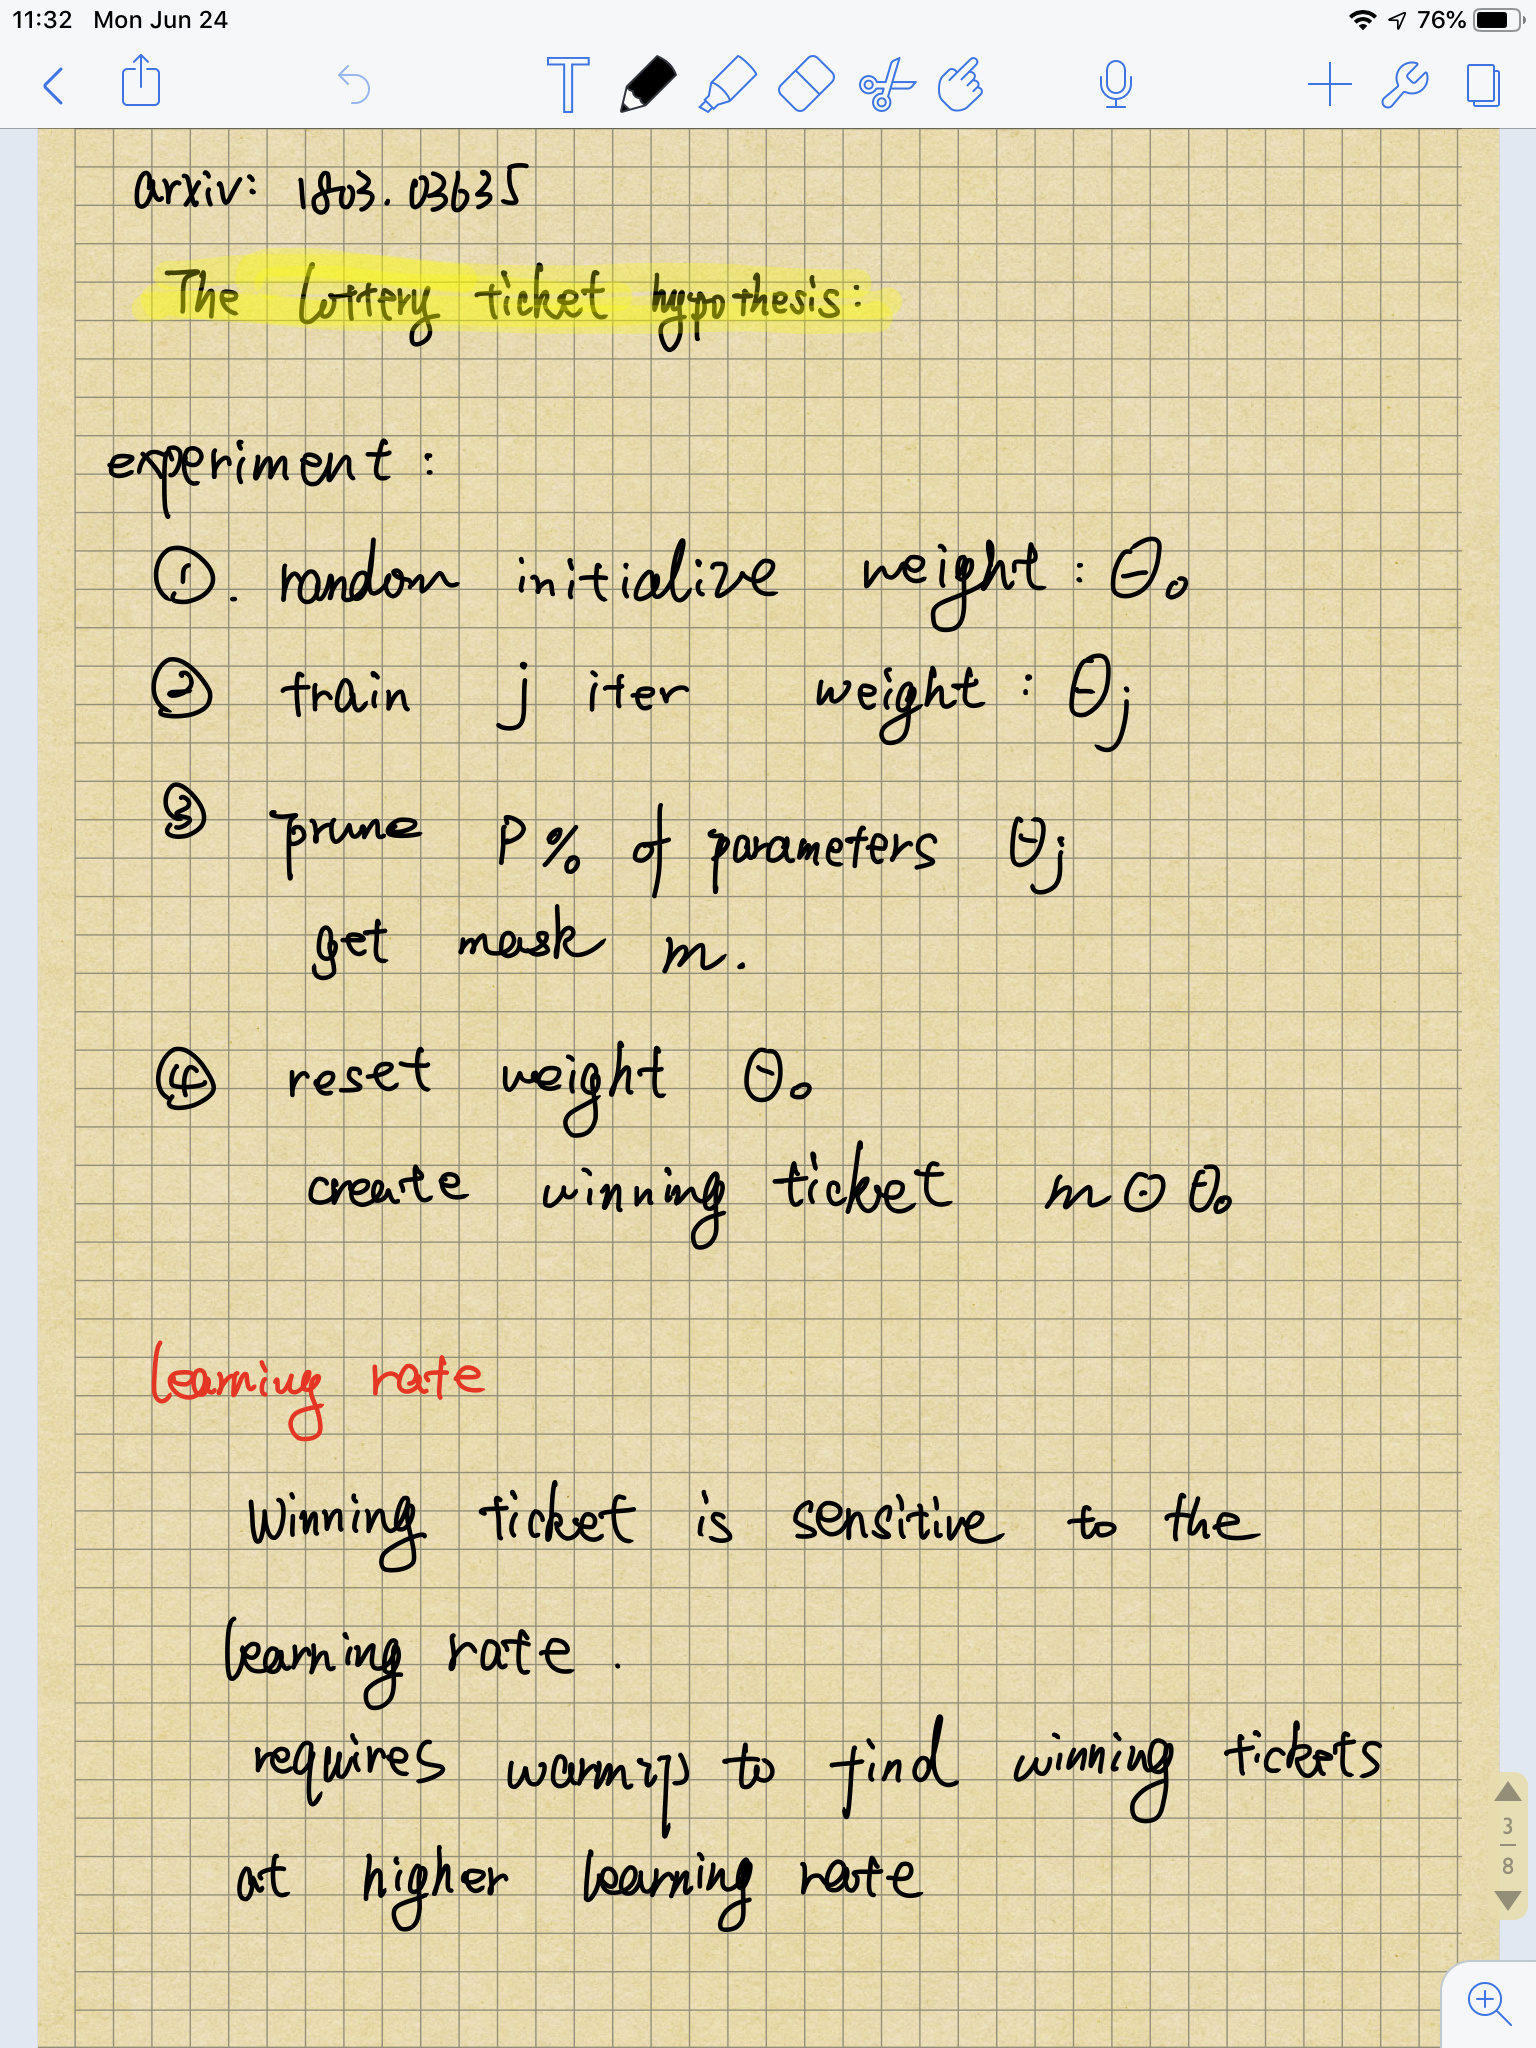 11:32 Mon Jun 24 76%
T
arxiv: 1803.03635
The lottery ticket hypothesis:
experiment:
①. random initialize weight: θ₀
② train j iter weight: θⱼ
③ prune P% of parameters θⱼ
get mask m.
④ reset weight θ₀
create winning ticket m⊙θ₀
learning rate
Winning ticket is sensitive to the
learning rate.
requires warmup to find winning tickets
at higher learning rate
3
8